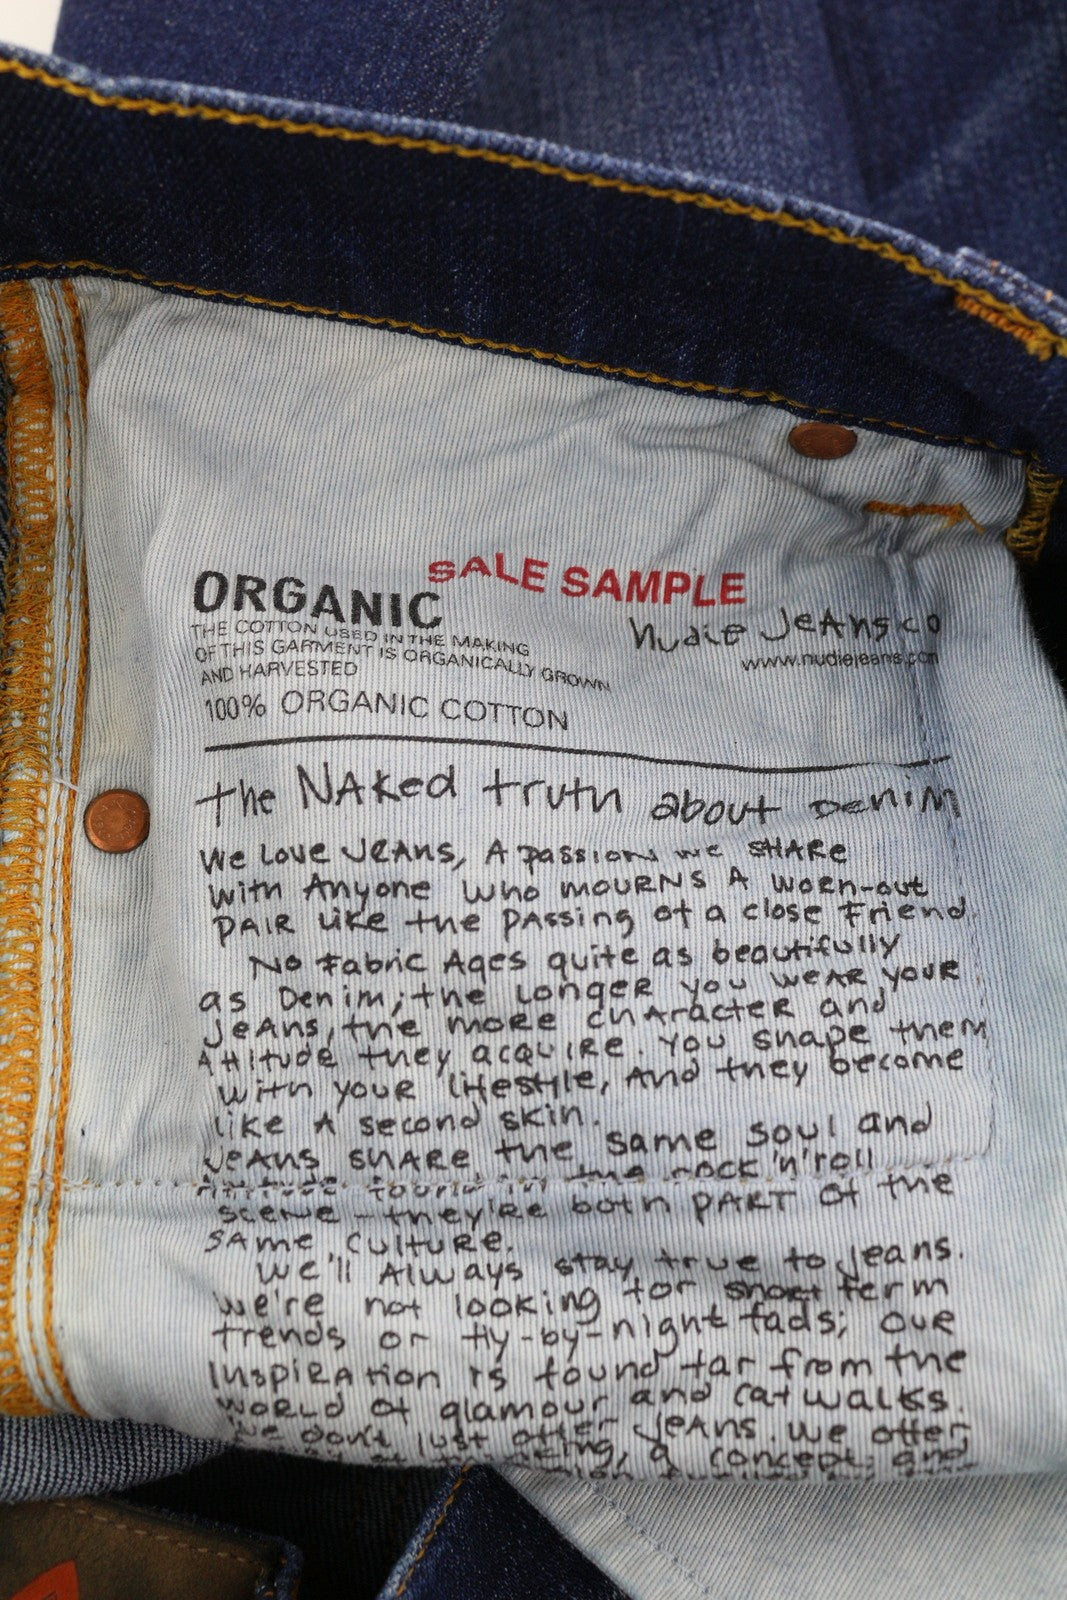 SALE SAMPLE
ORGANIC
THE COTTON USED IN THE MAKING
OF THIS GARMENT IS ORGANICALLY GROWN
AND HARVESTED
100% ORGANIC COTTON
Nudie Jeans co
www.nudiejeans.com
the NAKed truth about Denim
We Love JEAns, A passion we SHARe
With Anyone who mourns A worn-out
PAIR like the passing of a close Friend.
No Fabric Ages quite as beautifully
as Denim; the longer you weAR your
JeAns, the more character and
Attitude they acquire. You shape them
with your lifestyle, And they become
like A second skin.
JeAns sHARe the same soul and
Attitude found in the rock 'n' roll
scene - they're both PART of the
sAme culture.
We'll Always stay true to jeans.
We're not looking for short term
trends or fly-by-night fads; our
Inspiration is found far from the
world of glamour and catwalks.
We don't just offer JeAns. We offer
a concept and